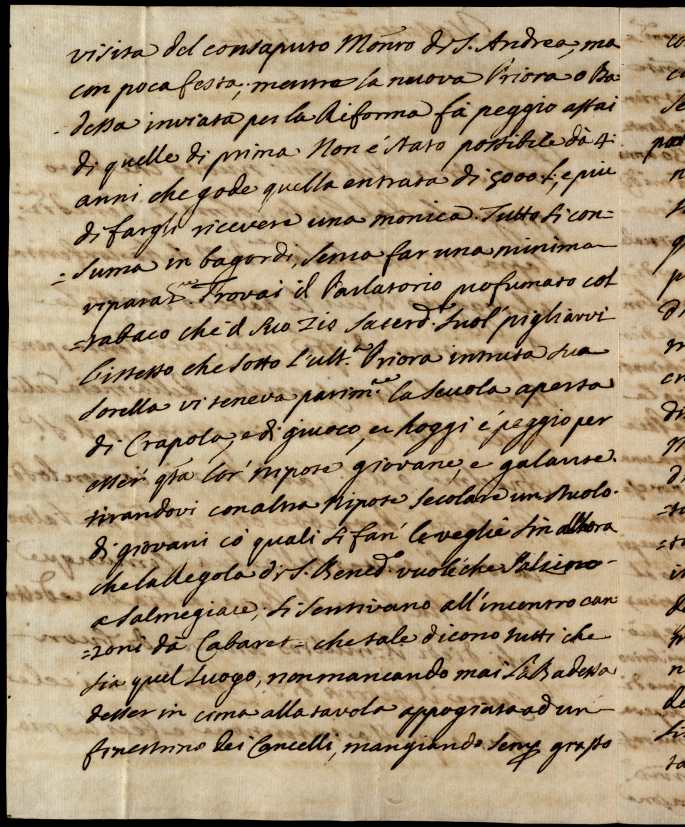 visita del consaputo Monro di S. Andrea, ma
con poca festa, mentre la nuova Priora o Ba
dessa inviata per la Riforma fà peggio assai
di quelle di prima Non é stato possibile dà 4
anni che gode quella entrata di 5000 e più
di fargli ricevere una monica. Tutto si con-
=suma in bagordi, senza far una minima
riparaz.ne Trovai il Parlatorio profumato col
=tabaco che il suo Zio Sacerd. suol' pigliarvi
l'istesso che sotto l'ult.a Priora intrusa sua
sorella vi teneva parim.te la scuola aperta
di Crapola, e di giuoco, et hoggi é peggio per
esser' q.ta lor' nipote giovane, e galante.
tirandovi con altra nipote secolare un stuolo
di giovani có quali si fan' le veglie sin all'hora
che la Regola di S. Bened.o vuol che s'alzino
a salmegiare; si sentivano all'incontro can
=zoni dà Cabaret = che tale dicono tutti che
sia quel luogo, non mancando mai la Badessa
d'esser in cima alla tavola appogiata ad un
finestrino dei Cancelli, mangiando semp grasso